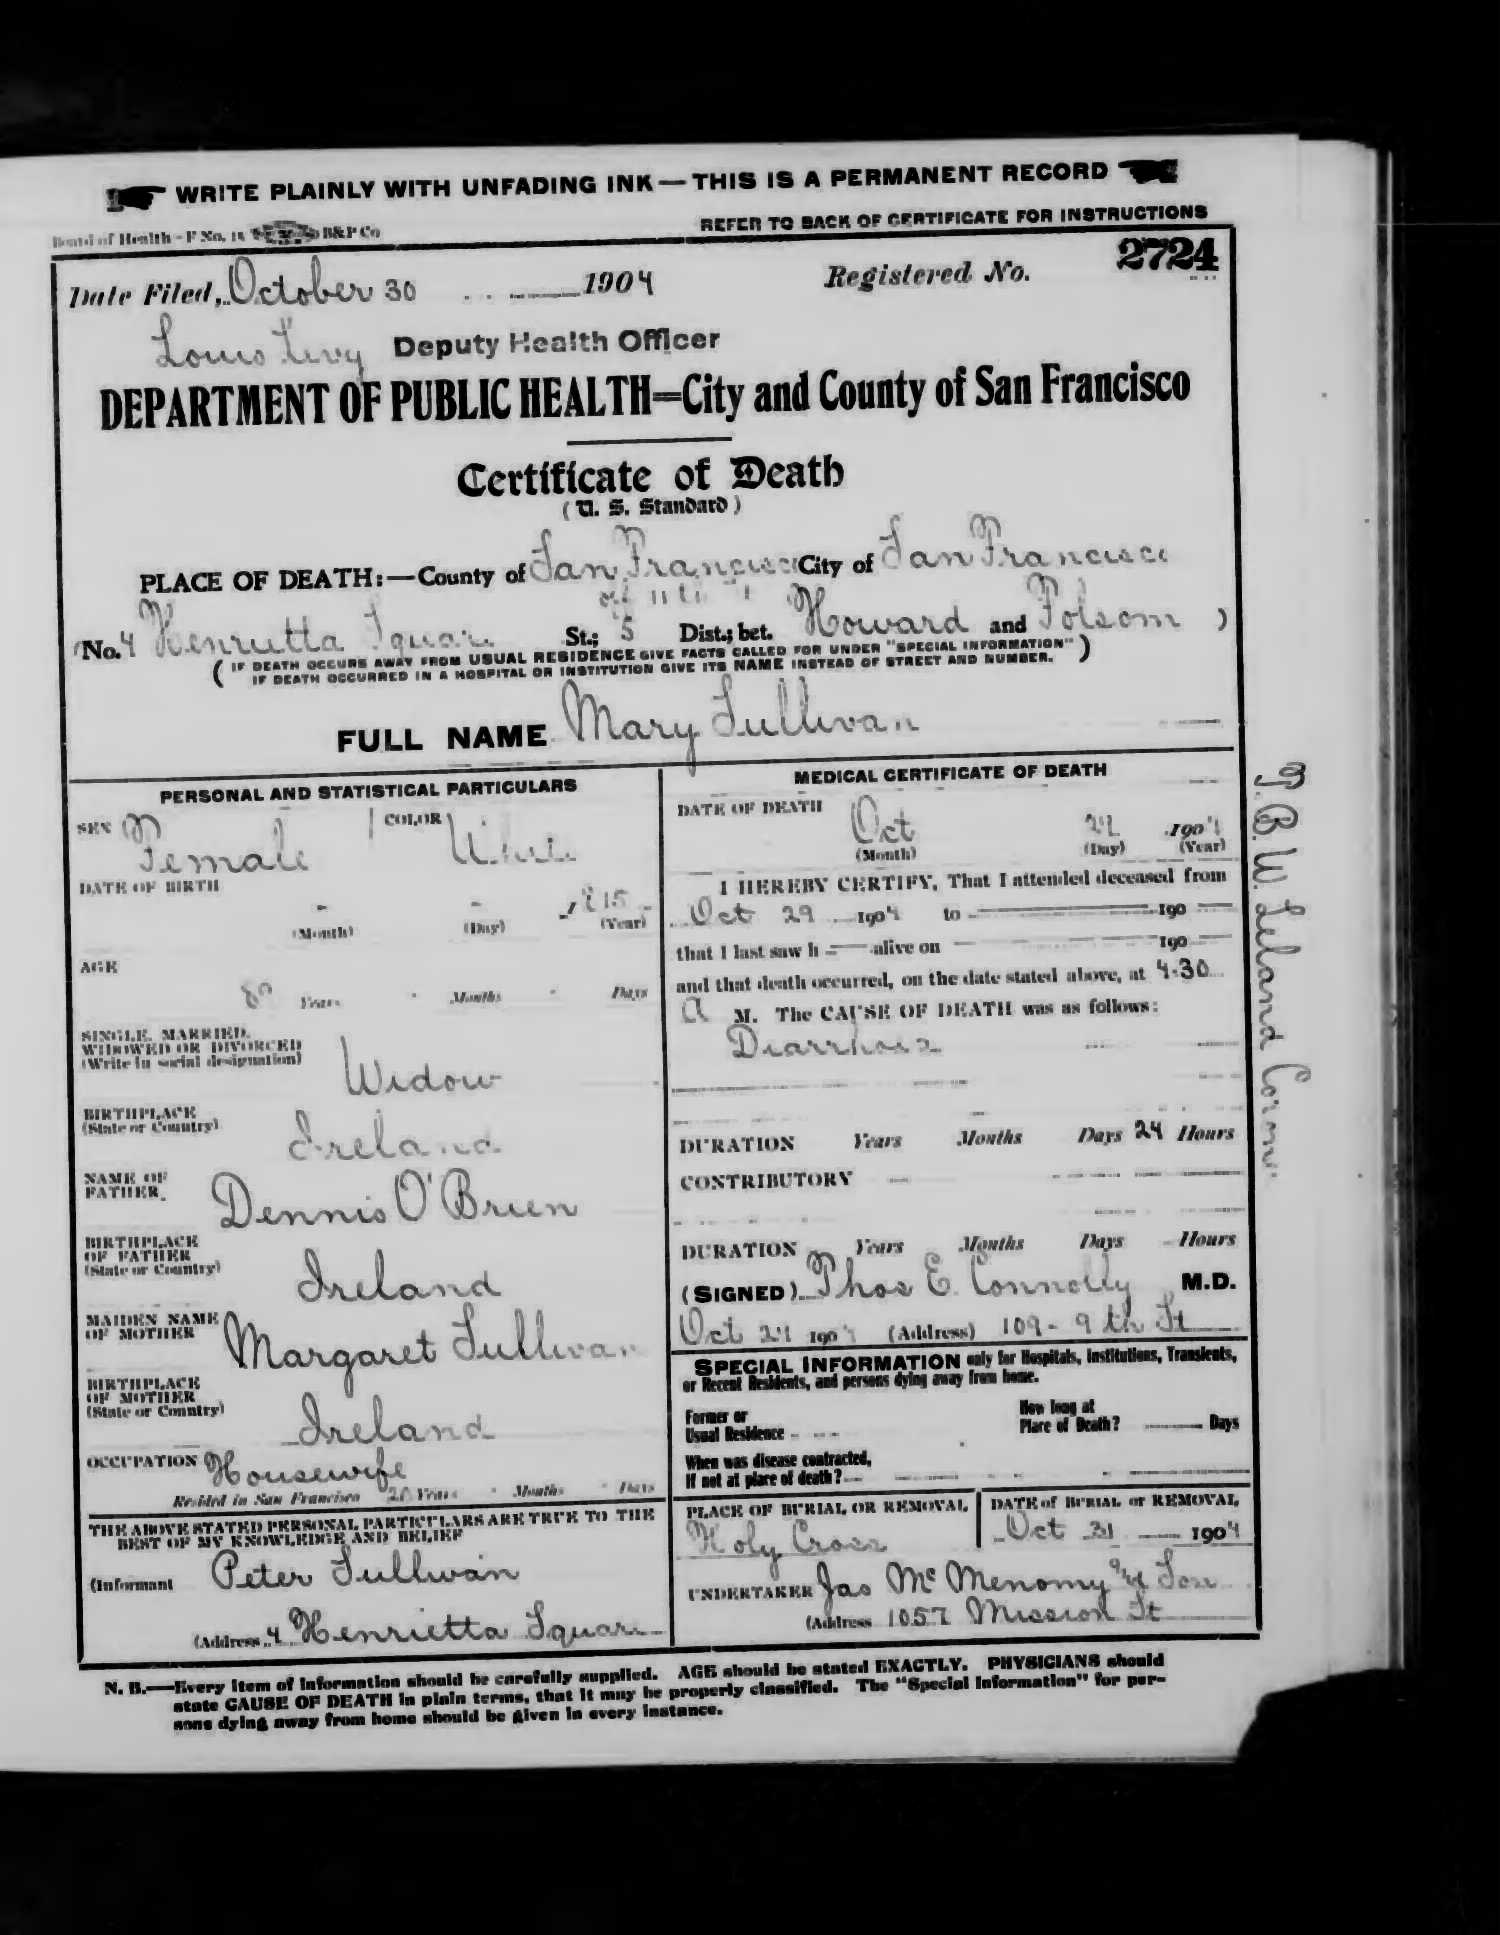 WRITE PLAINLY WITH UNFADING INK—THIS IS A PERMANENT RECORD
Board of Health-F No. 15 B&P Co
REFER TO BACK OF CERTIFICATE FOR INSTRUCTIONS
2724
Date Filed, October 30 1904 Registered No.
Louis Levy Deputy Health Officer
DEPARTMENT OF PUBLIC HEALTH=City and County of San Francisco
Certificate of Death
(U. S. Standard)
PLACE OF DEATH:—County of San Francisco City of San Francisco
off 11th St
(No. 4 Henrietta Square St.; 5 Dist.; bet. Howard and Folsom )
( IF DEATH OCCURS AWAY FROM USUAL RESIDENCE GIVE FACTS CALLED FOR UNDER "SPECIAL INFORMATION" )
IF DEATH OCCURRED IN A HOSPITAL OR INSTITUTION GIVE ITS NAME INSTEAD OF STREET AND NUMBER.
FULL NAME Mary Sullivan
PERSONAL AND STATISTICAL PARTICULARS
SEX Female COLOR White
DATE OF BIRTH
- - 1815
(Month) (Day) (Year)
AGE
Years Months Days
SINGLE, MARRIED,
WIDOWED OR DIVORCED
(Write in social designation) Widow
BIRTHPLACE
(State or Country) Ireland
NAME OF
FATHER Dennis O'Brien
BIRTHPLACE
OF FATHER
(State or Country) Ireland
MAIDEN NAME
OF MOTHER Margaret Sullivan
BIRTHPLACE
OF MOTHER
(State or Country) Ireland
OCCUPATION Housewife
Resided in San Francisco 20 Years Months Days
THE ABOVE STATED PERSONAL PARTICULARS ARE TRUE TO THE
BEST OF MY KNOWLEDGE AND BELIEF
(Informant Peter Sullivan
(Address 4 Henrietta Square
MEDICAL CERTIFICATE OF DEATH
DATE OF DEATH
Oct 1904
(Month) (Day) (Year)
I HEREBY CERTIFY, That I attended deceased from
Oct 29 1904 to 190
that I last saw h alive on 190
and that death occurred, on the date stated above, at 4-30
A M. The CAUSE OF DEATH was as follows:
Diarrhoea
DURATION Years Months Days 24 Hours
CONTRIBUTORY
DURATION Years Months Days Hours
(SIGNED) Thos E. Connolly M.D.
Oct 1904 (Address) 109-9th St
SPECIAL INFORMATION only for Hospitals, Institutions, Transients,
or Recent Residents, and persons dying away from home.
Former or
Usual Residence
How long at
Place of Death? Days
When was disease contracted,
If not at place of death?
PLACE OF BURIAL OR REMOVAL
Holy Cross
DATE of BURIAL or REMOVAL
Oct 31 1904
UNDERTAKER Jas McMenomy and Son
(Address 1057 Mission St
T. B. W. Leland Coroner
N. B.—Every item of information should be carefully supplied. AGE should be stated EXACTLY. PHYSICIANS should
state CAUSE OF DEATH in plain terms, that it may be properly classified. The "Special Information" for per-
sons dying away from home should be given in every instance.